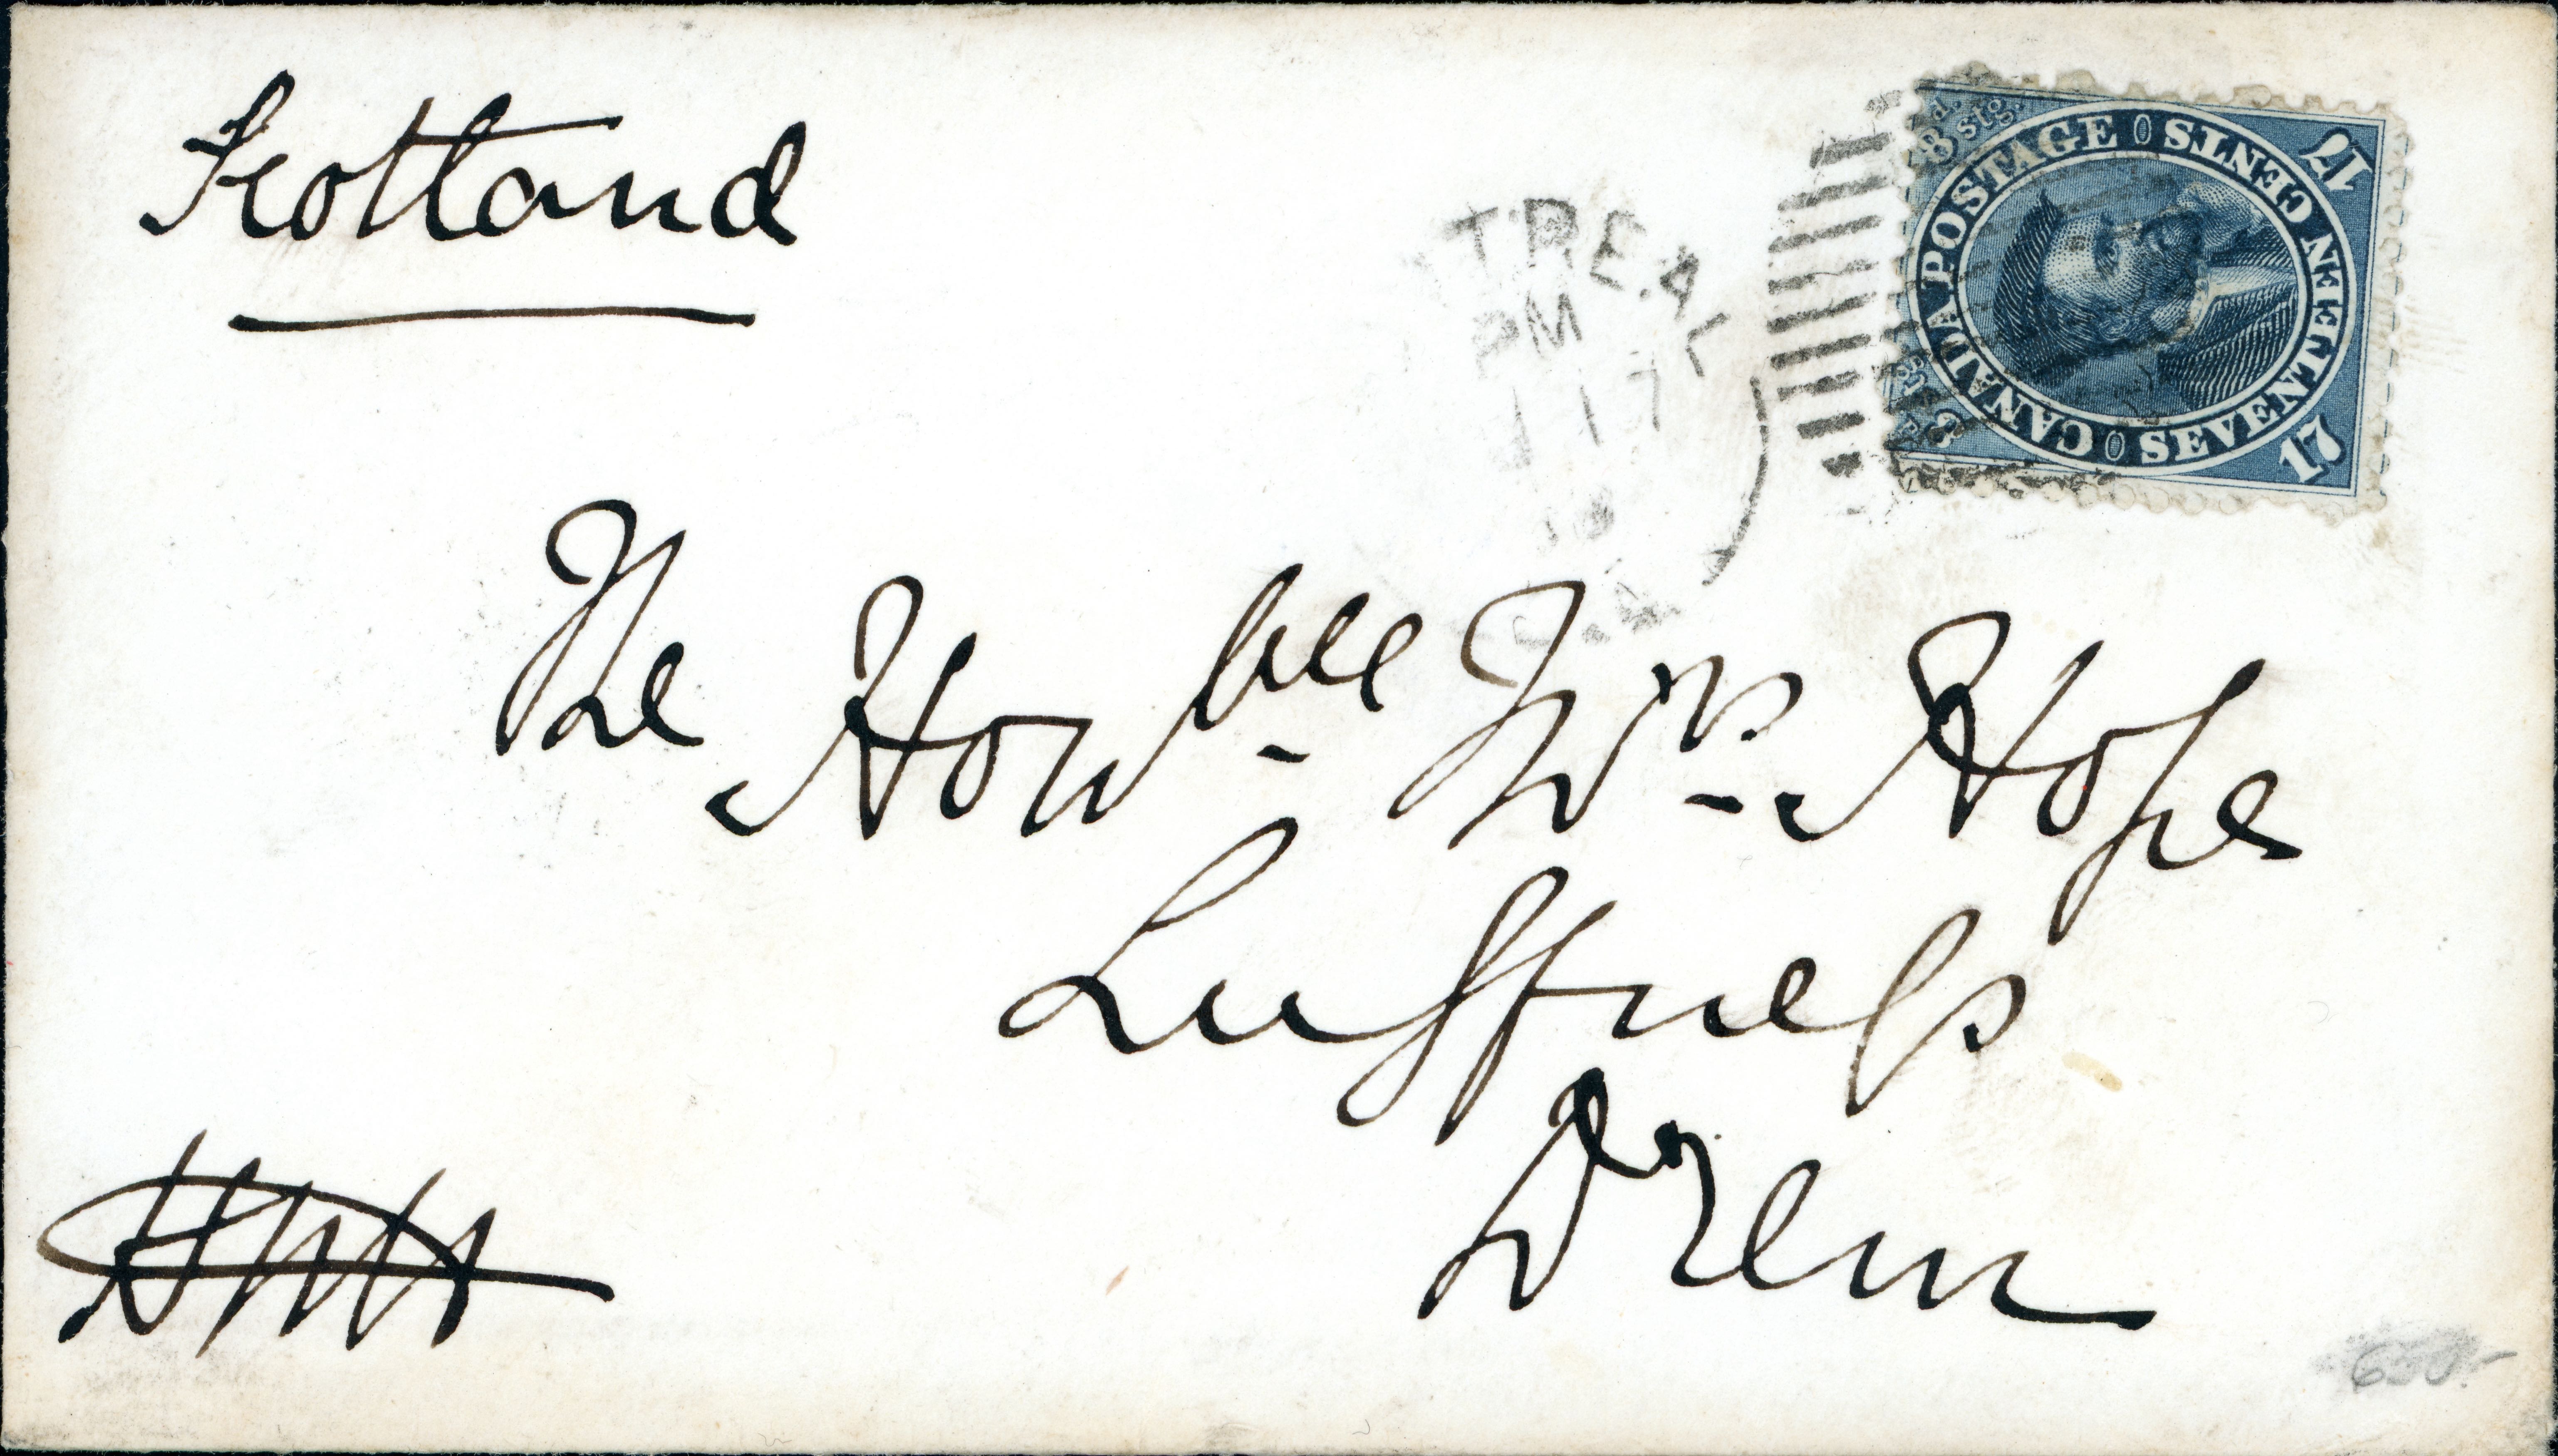 Scotland
CANADA POSTAGE
SEVENTEEN CENTS
17
17
8d. stg.
8d. stg.
TREAL
PM
17
The Honble Wm Hope
Luffness
Drem
650.-